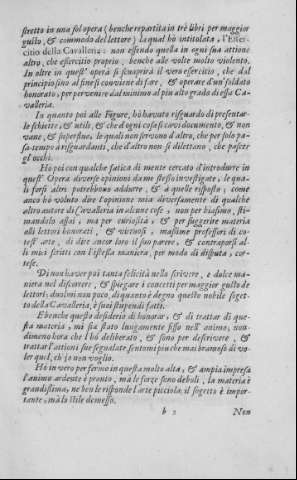 stretto in una sol opera (benche repartita in trè libri per maggior
gusto, & commodo del lettore) la qual hò intitolata, l'Eser-
citio della Cavalleria: non essendo quella in ogni sua attione
altro, che esercitio proprio, benche alle volte molto violento.
In oltre in quest' opera si scuoprirà il vero esercitio, che dal
principio sino al fine si conviene di fare, & operare d'un soldato
honorato, per pervenire dal minimo al piu alto grado di essa Ca-
valleria.
In quanto poi alle Figure, hò havuto risguardo di presentar-
le schiette, & utili, & che d'ogni cosa si cavi documento, & non
vane, & superflue, le quali non servono d'altro, che per solo pas-
sa tempo a risguardanti, che d'altro non si dilettano, che pascere
gl' occhi.
Ho poi con qualche fatica di mente cercato d'introdurre in
quest' Opera diverse opinioni da me stesso investigate, le qua-
li forsi altri potrebbono addurre, & a quelle risposto; come
anco hò voluto dire l'opinione mia diversamente di qualche
altro autore di Cavalleria in alcune cose, non per biasimo, sti-
mandolo assai, ma per curiosità, & per suggerire materia
alli lettori honorati, & virtuosi, massime professori di co-
test' arte, di dire ancor loro il suo parere, & contraporsi al-
li miei scritti con l'istessa maniera, per modo di disputa, cor-
tese.
Di non haver poi tanta felicità nello scrivere, e dolce ma-
niera nel discorrere, & spiegare i concetti per maggior gusto de
lettori, duolmi non poco, di quanto è degno questo nobile sogget-
to della Cavalleria, è suoi stupendi fatti.
E benche questo desiderio di honorar, & di trattar di que-
sta materia, mi sia stato luogamente fisso nell' animo, non-
dimeno hora che l'hò deliberato, & sono per descrivere, &
trattar l'attioni sue segnalate sentomi piu che mai bramoso di vo-
ler quel, ch'io non voglio.
Hò in vero per fermo in questa molto alta, & ampia impresa
l'animo ardente è pronto, ma le forze sono deboli, la materia è
grandissima, ne ben le risponde l'arte picciola; il sogetto è impor-
tante, mà lo stile demesso.
b 2 Non